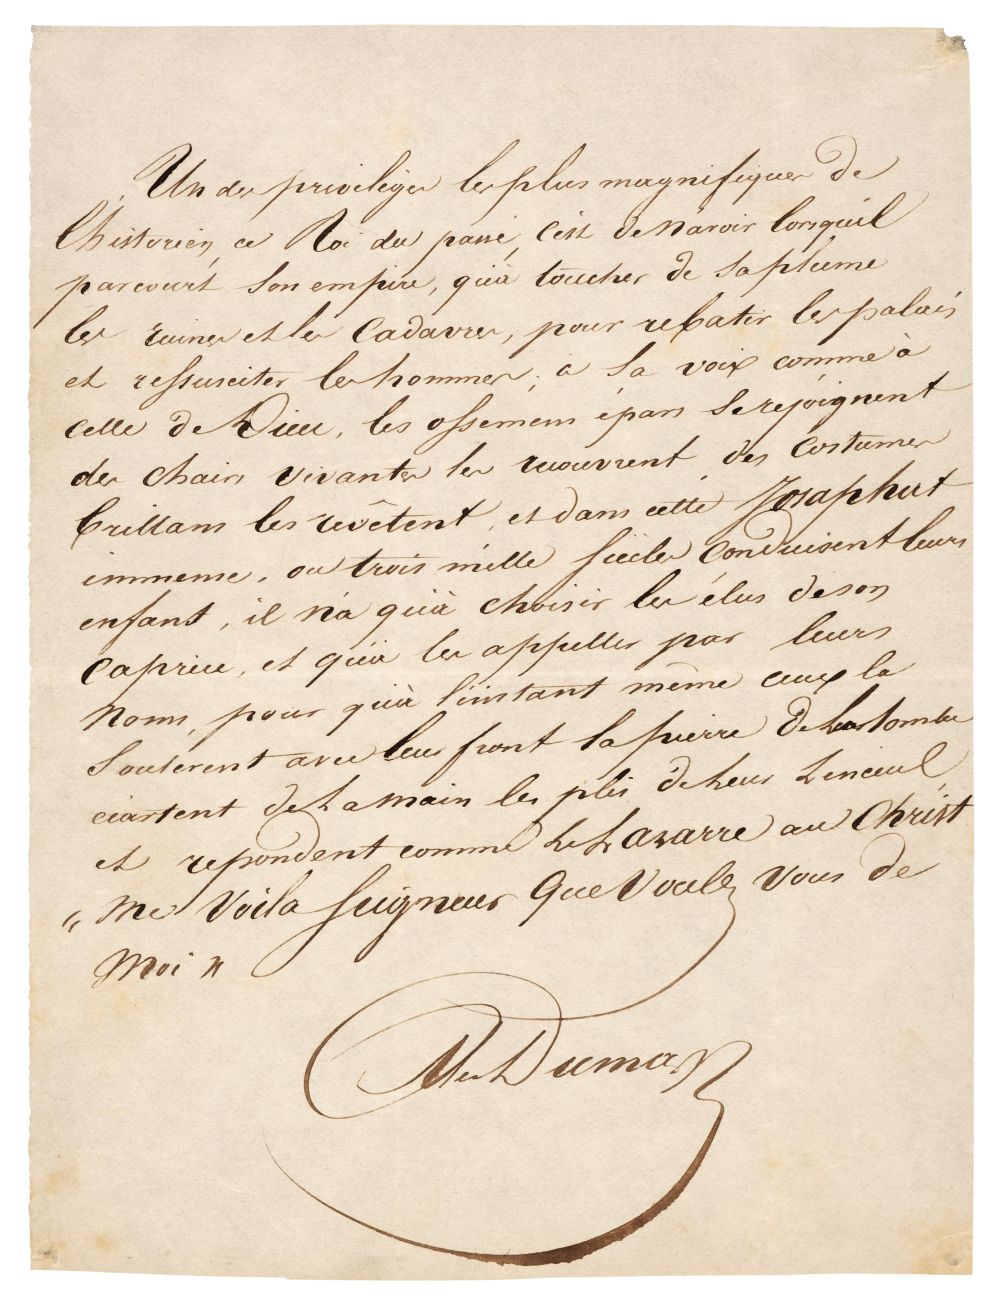 Un des privilèges les plus magnifiques de
l'historien, ce Roi du passé, c'est de n'avoir lorsqu'il
parcourt son empire, qu'à toucher de sa plume
les ruines et les cadavres, pour rebatir les palais
et ressusciter les hommes; a sa voix comme à
celle de Dieu, les ossemens épars se rejoignent
des chairs vivantes les recouvrent, des costumes
brillans les revêtent, et dans cette Josaphat
immense, ou trois mille siècles conduisent leurs
enfant, il n'a qu'à choisir les élus de son
caprice, et qu'à les appeller par leurs
noms, pour qu'à l'instant même ceux la
soulerent avec leur front la pierre de leur tombe
ecartent de la main les plis de leur linceul
et repondent comme le Lazarre au Christ
" me voila seigneur que voulez vous de
moi "
Alex Dumas